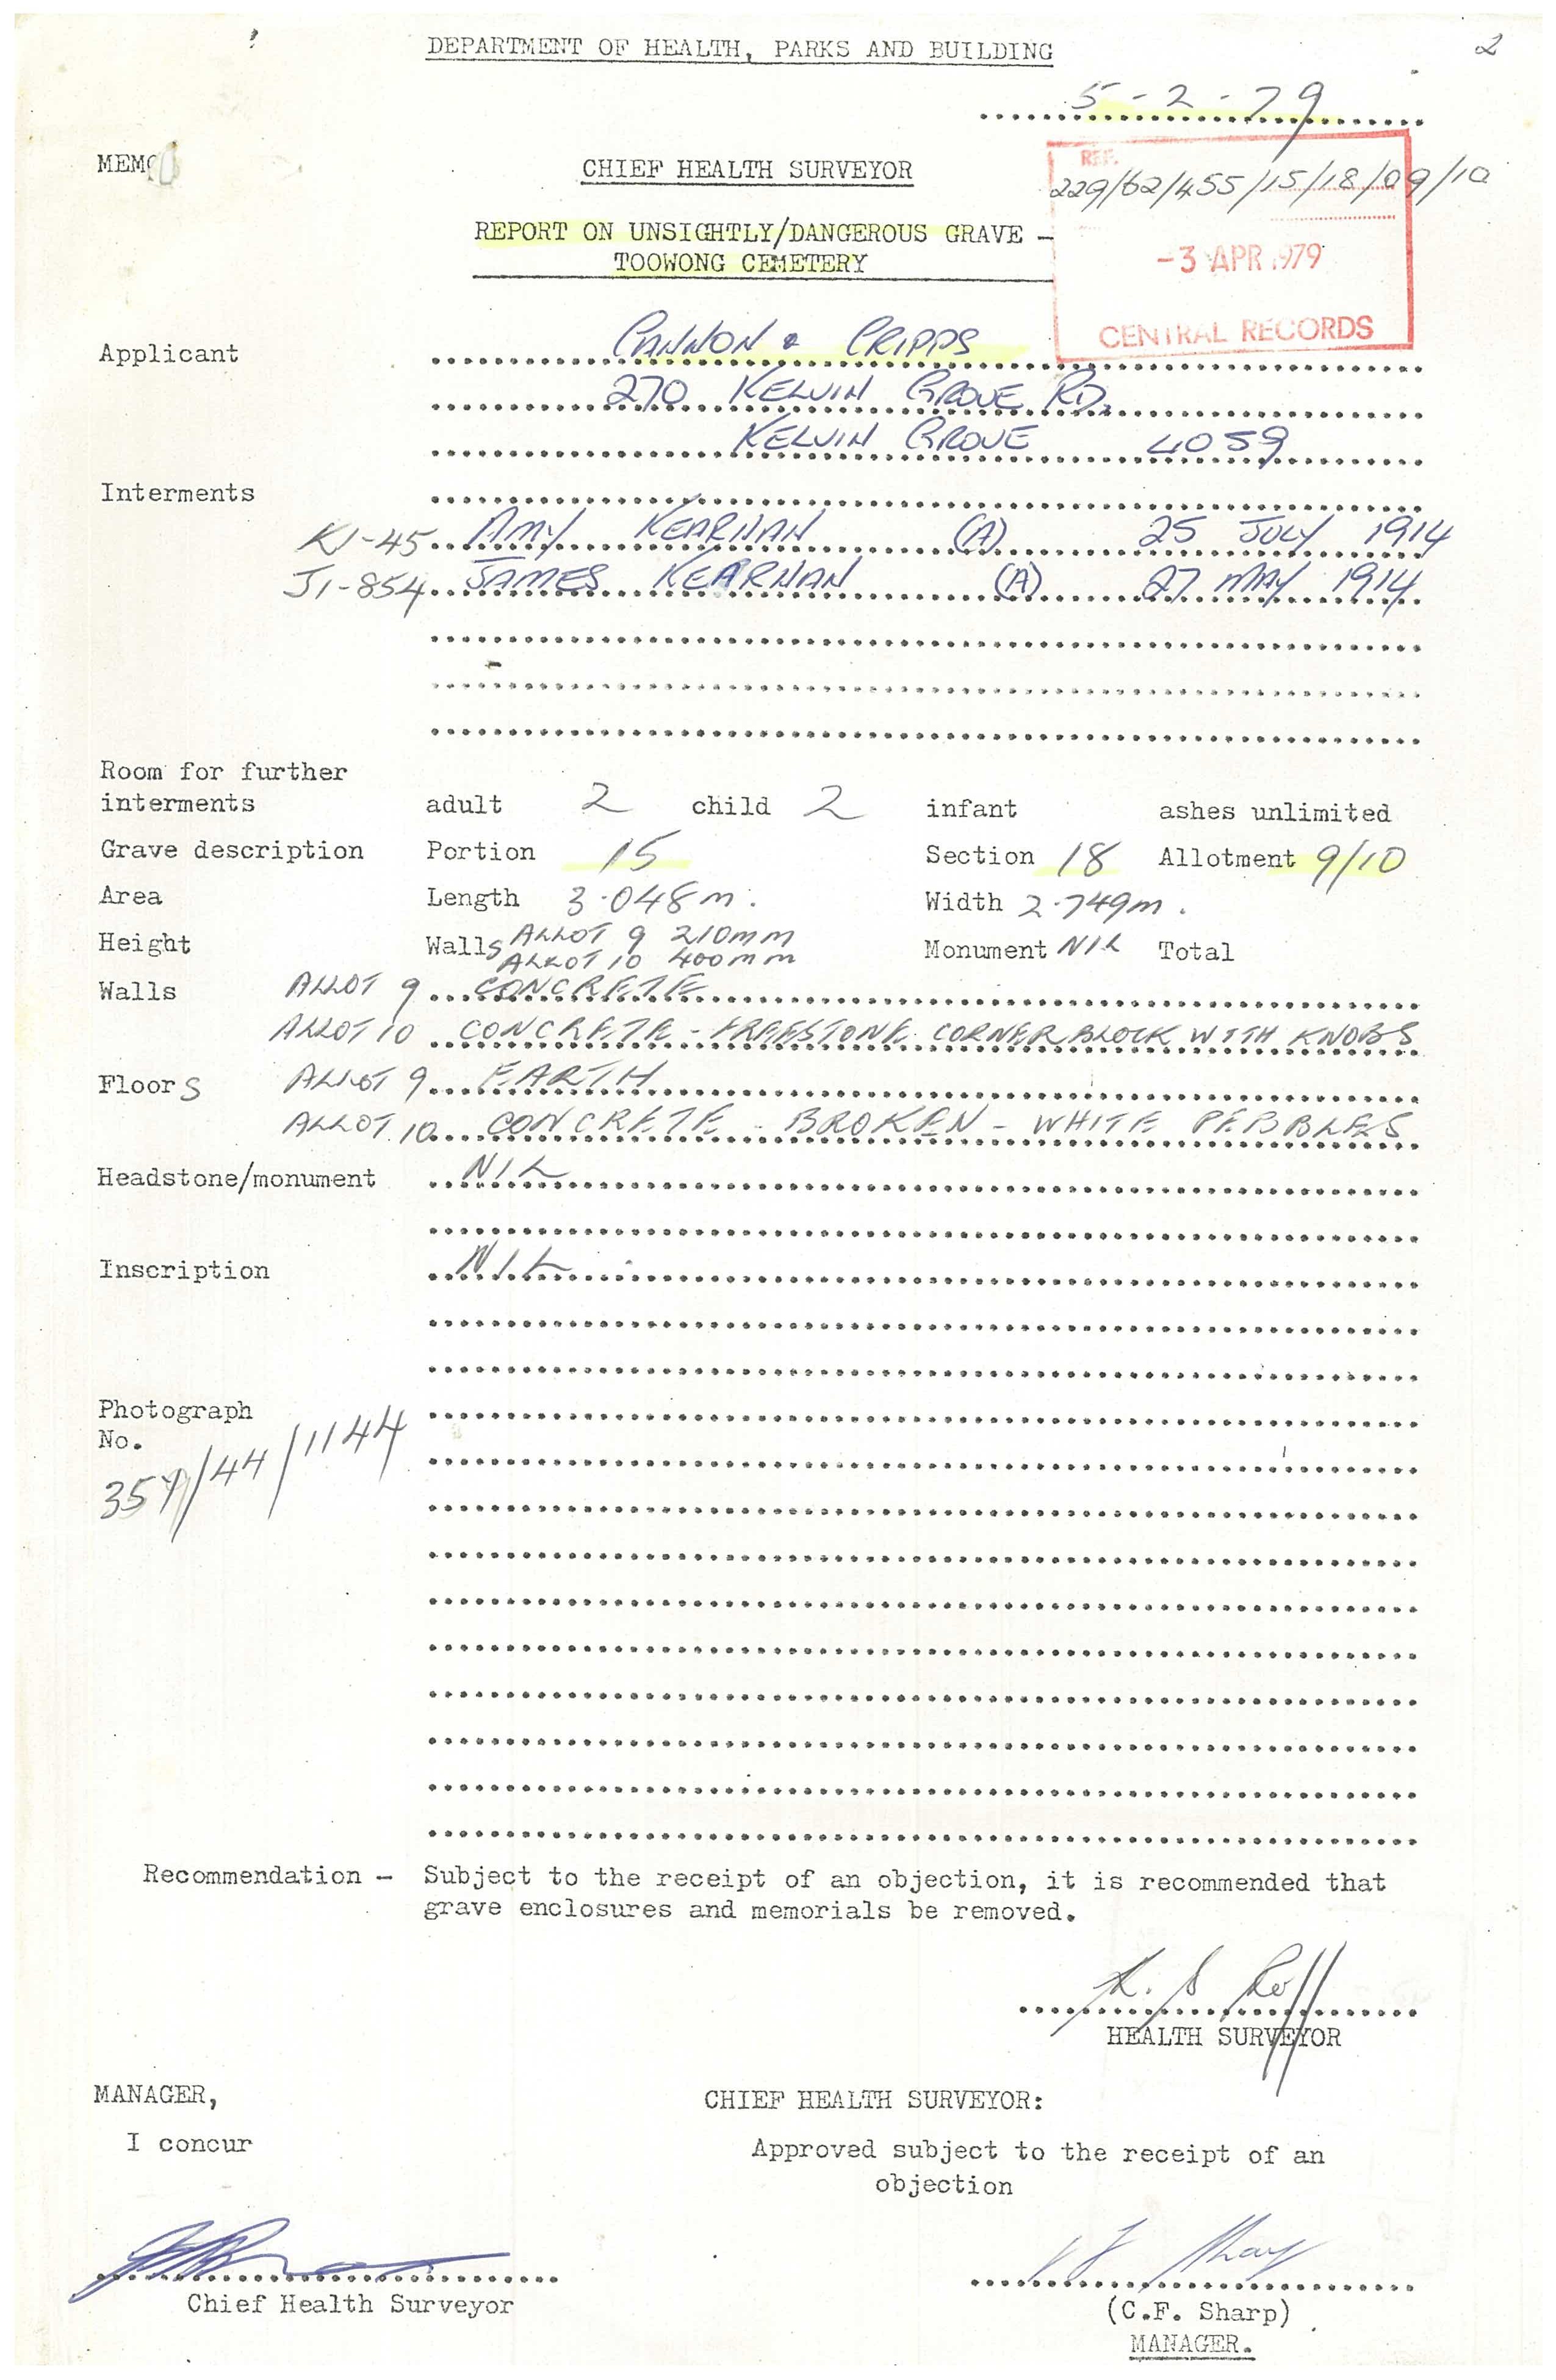 2
DEPARTMENT OF HEALTH, PARKS AND BUILDING
5-2-79
MEMO
CHIEF HEALTH SURVEYOR
REF.
229/62/455/15/18/09/10
REPORT ON UNSIGHTLY/DANGEROUS GRAVE -
TOOWONG CEMETERY
-3 APR 1979
CENTRAL RECORDS
Applicant CANNON & CRIPPS
270 KELVIN GROVE RD.
KELVIN GROVE 4059
Interments
K1-45 AMY KEARNAN (A) 25 JULY 1914
J1-854 JAMES KEARNAN (A) 27 MAY 1914
Room for further
interments adult 2 child 2 infant ashes unlimited
Grave description Portion 15 Section 18 Allotment 9/10
Area Length 3.048m. Width 2.749m.
Height Walls ALLOT 9 210mm Monument NIL Total
ALLOT 10 400mm
Walls ALLOT 9 CONCRETE
ALLOT 10 CONCRETE - FREESTONE CORNER BLOCK WITH KNOBS
Floors ALLOT 9 EARTH
ALLOT 10 CONCRETE - BROKEN - WHITE PEBBLES
Headstone/monument NIL
Inscription NIL
Photograph
No.
357/44/1144
Recommendation - Subject to the receipt of an objection, it is recommended that
grave enclosures and memorials be removed.
HEALTH SURVEYOR
MANAGER, CHIEF HEALTH SURVEYOR:
I concur Approved subject to the receipt of an
objection
Chief Health Surveyor (C.F. Sharp)
MANAGER.